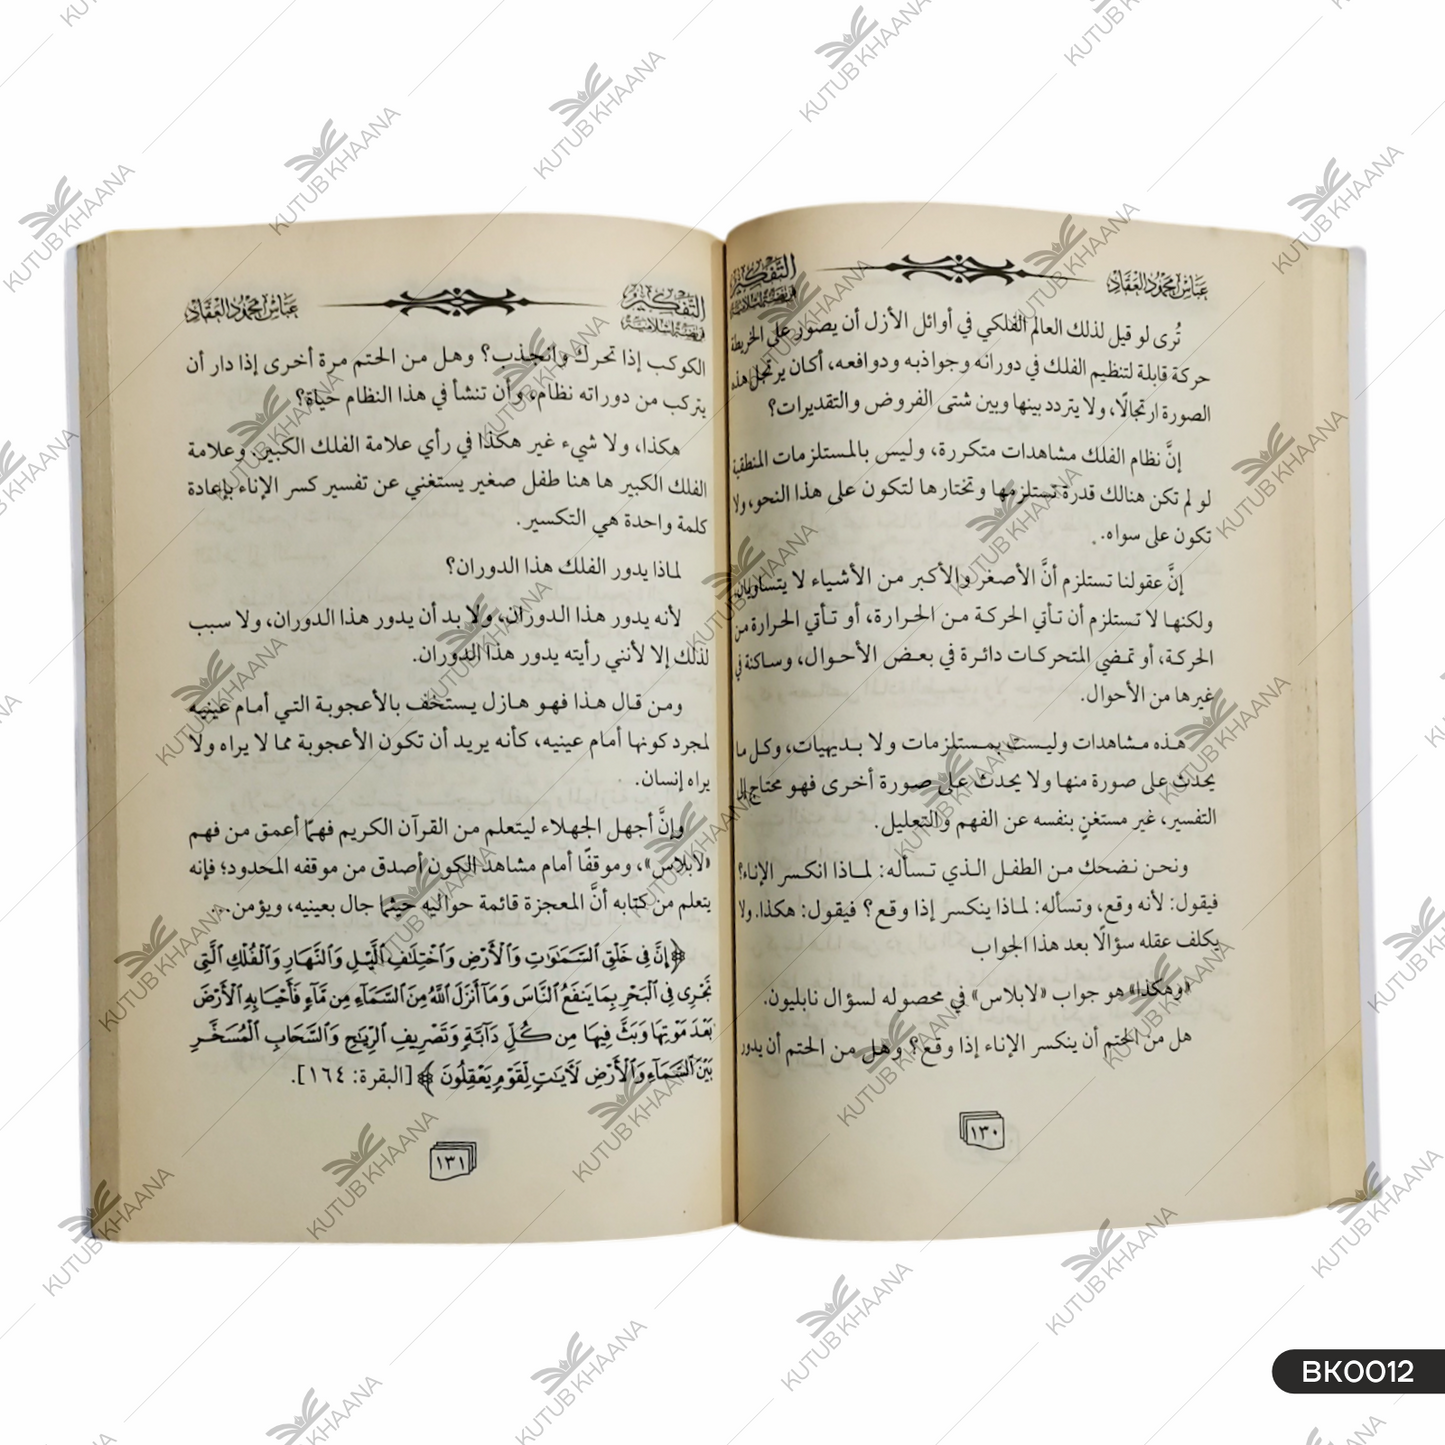 عباس محمود العقاد
التفكير
فريضة إسلامية
تُرى لو قيل لذلك العالم الفلكي في أوائل الأزل أن يصور على الخريطة
حركة قابلة لتنظيم الفلك في دورانه وجواذبه ودوافعه، أكان يرتجل هذه
الصورة ارتجالًا، ولا يتردد بينها وبين شتى الفروض والتقديرات؟
إنَّ نظام الفلك مشاهدات متكررة، وليس بالمستلزمات المنطقية
لو لم تكن هنالك قدرة تستلزمها وتختارها لتكون على هذا النحو، ولا
تكون على سواه.
إنَّ عقولنا تستلزم أنَّ الأصغر والأكبر من الأشياء لا يتساويان،
ولكنها لا تستلزم أن تأتي الحركة من الحرارة، أو تأتي الحرارة من
الحركة، أو تمضي المتحركات دائرة في بعض الأحوال، وساكنة في
غيرها من الأحوال.
هذه مشاهدات وليست بمستلزمات ولا بديهيات، وكل ما
يحدث على صورة منها ولا يحدث على صورة أخرى فهو محتاج إلى
التفسير، غير مستغنٍ بنفسه عن الفهم والتعليل.
ونحن نضحك من الطفل الذي تسأله: لماذا انكسر الإناء؟
فيقول: لأنه وقع، وتسأله: لماذا ينكسر إذا وقع؟ فيقول: هكذا. ولا
يكلف عقله سؤالًا بعد هذا الجواب
«وهكذا» هو جواب «لابلاس» في محصوله لسؤال نابليون.
هل من الحتم أن ينكسر الإناء إذا وقع؟ وهل من الحتم أن يدور
١٣٠
التفكير
فريضة إسلامية
عباس محمود العقاد
الكوكب إذا تحرك وانجذب؟ وهل من الحتم مرة أخرى إذا دار أن
يتركب من دوراته نظام، وأن تنشأ في هذا النظام حياة؟
هكذا، ولا شيء غير هكذا في رأي علامة الفلك الكبير. وعلامة
الفلك الكبير ها هنا طفل صغير يستغني عن تفسير كسر الإناء بإعادة
كلمة واحدة هي التكسير.
لماذا يدور الفلك هذا الدوران؟
لأنه يدور هذا الدوران، ولا بد أن يدور هذا الدوران، ولا سبب
لذلك إلا لأنني رأيته يدور هذا الدوران.
ومن قال هذا فهو هازل يستخف بالأعجوبة التي أمام عينيه
لمجرد كونها أمام عينيه، كأنه يريد أن تكون الأعجوبة مما لا يراه ولا
يراه إنسان.
وإنَّ أجهل الجهلاء ليتعلم من القرآن الكريم فهمًا أعمق من فهم
«لابلاس»، وموقفًا أمام مشاهد الكون أصدق من موقفه المحدود؛ فإنه
يتعلم من كتابه أنَّ المعجزة قائمة حواليه حيثما جال بعينيه، ويؤمن..
﴿إِنَّ فِي خَلْقِ السَّمَٰوَٰتِ وَالْأَرْضِ وَاخْتِلَٰفِ الَّيْلِ وَالنَّهَارِ وَالْفُلْكِ الَّتِي
تَجْرِي فِي الْبَحْرِ بِمَا يَنفَعُ النَّاسَ وَمَا أَنزَلَ اللَّهُ مِنَ السَّمَاءِ مِن مَّاءٍ فَأَحْيَا بِهِ الْأَرْضَ
بَعْدَ مَوْتِهَا وَبَثَّ فِيهَا مِن كُلِّ دَابَّةٍ وَتَصْرِيفِ الرِّيَٰحِ وَالسَّحَابِ الْمُسَخَّرِ
بَيْنَ السَّمَاءِ وَالْأَرْضِ لَآيَٰتٍ لِّقَوْمٍ يَعْقِلُونَ﴾ [البقرة: ١٦٤].
١٣١
KUTUB KHAANA
BK0012